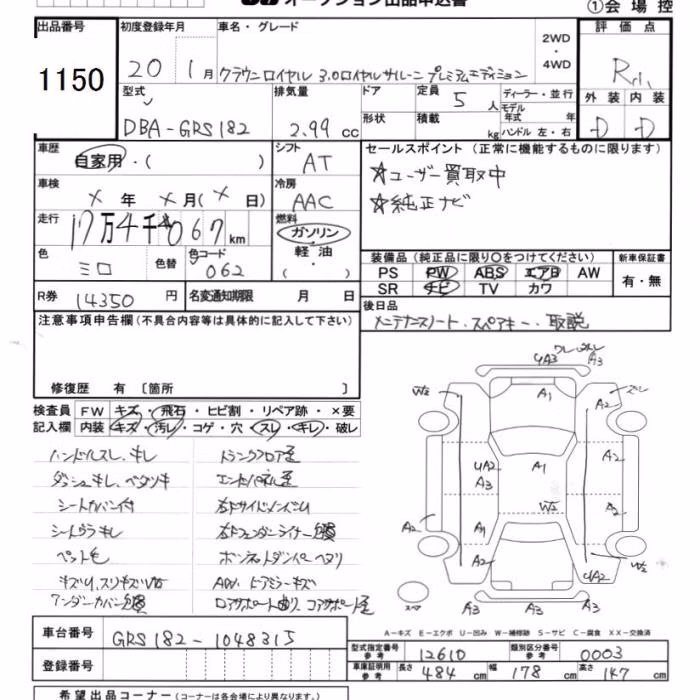 オークション出品申込書
①会場控
出品番号 初度登録年月 車名・グレード 2WD・4WD 評価点
1150 20 1月 クラウンロイヤル 3.0ロイヤルサルーン プレミアムエディション R
型式 排気量 ドア 定員 5人 ディーラー・並行 外装 内装
DBA-GRS182 2.99 cc 形状 積載 kg モデル年式 年 ハンドル 左・右 D D
車歴 自家用・( ) シフト AT セールスポイント(正常に機能するものに限ります)
車検 ×年 ×月(×日) 冷房 AAC ☆ユーザー買取車
☆純正ナビ
走行 17万4千067km 燃料 ガソリン・軽油・( )
色 シロ 色替 色コード 062
装備品(純正品に限り○をつけてください) 新車保証書
PS PW ABS エアB AW 有・無
SR ナビ TV カワ
R券 14350円 名変通知期限 月 日 後日品
メンテナンスノート.スペアキー.取説
注意事項申告欄(不具合内容等は具体的に記入して下さい)
修復歴 有〔箇所 〕
検査員 FW キズ・飛石・ヒビ割・リペア跡・×要
記入欄 内装 キズ・汚レ・コゲ・穴・スレ・キレ・破レ
ハンドルスレ.キレ トランクフロア歪
ダッシュキレ.ベタツキ エンドパネル歪
シートカバー付 右Fサイドメンバーム
シートウラキレ 右Fフェンダーライナー欠損
ペット毛 ボンネットダンパーヘタリ
アンダーカバー欠損
A1
A2
A3
UA2
A1
A2
W2
スペア
A3 A3 A3
A−キズ E−エクボ U−凹み W−補修跡 S−サビ C−腐食 XX−交換済
車台番号 GRS182-1048315
登録番号
型式指定番号 参考 12610 類別区分番号 参考 0003
車庫証明用 参考 長さ 484cm 幅 178cm 高さ 147cm
希望出品コーナー(コーナーは各会場により異なります。)